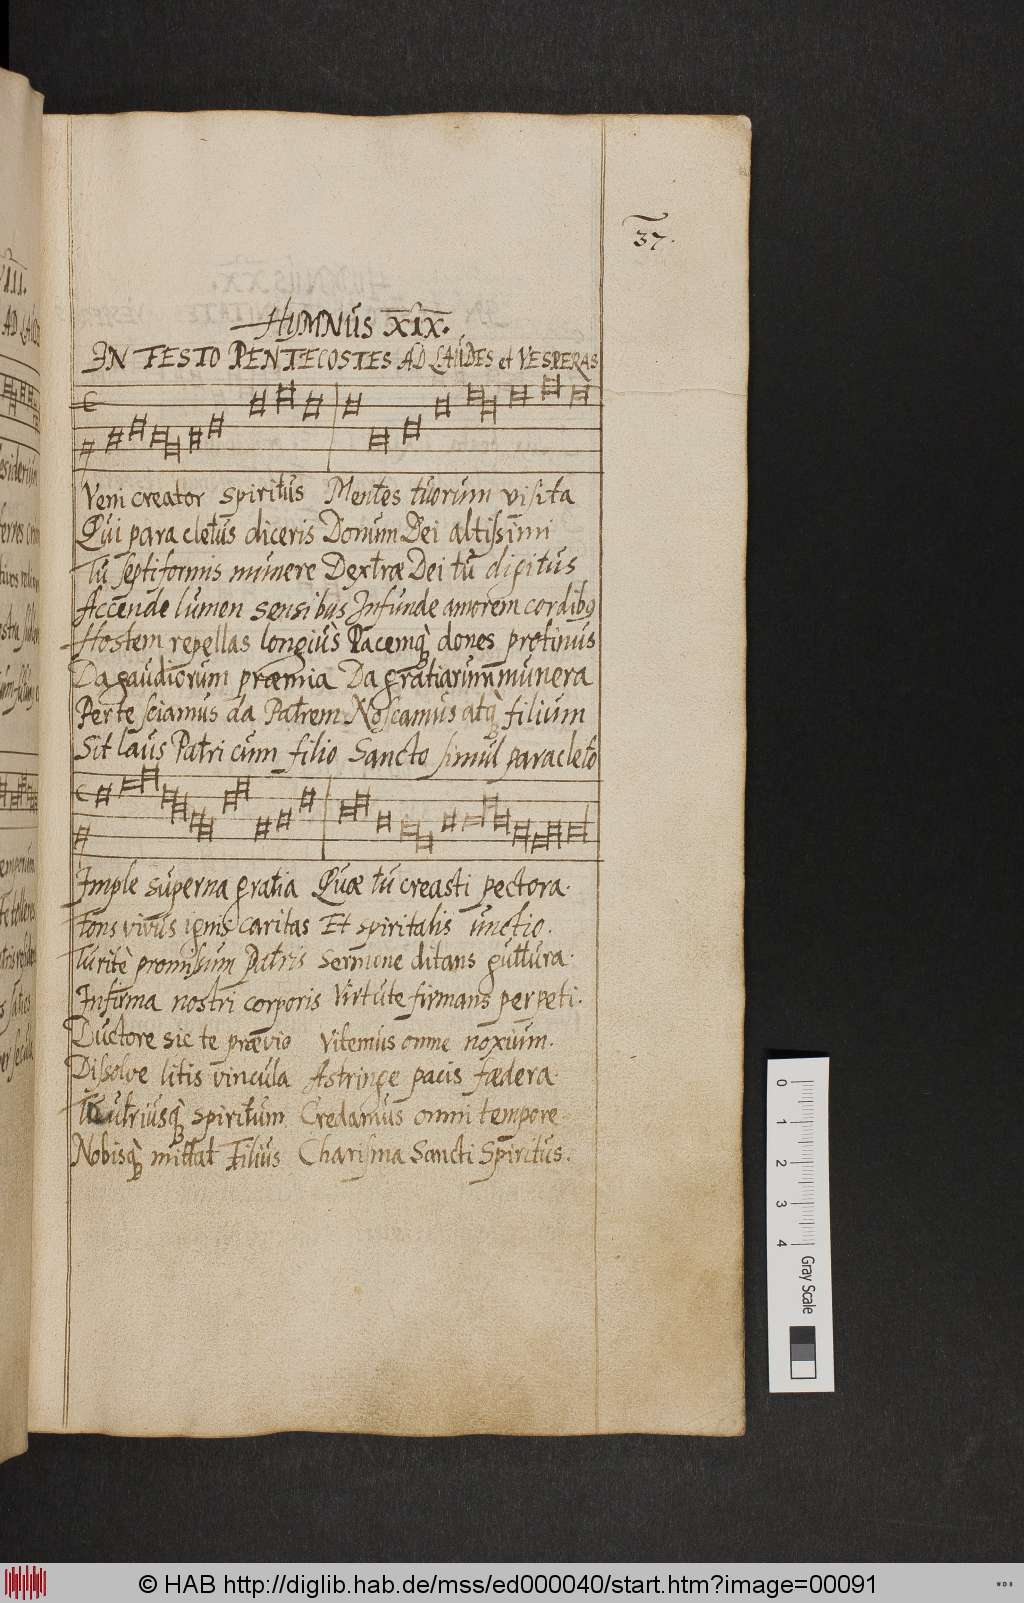 37.
HYMNUS XIX.
IN FESTO PENTECOSTES AD LAUDES et VESPERAS
Veni creator spiritus Mentes tuorum visita
Qui paracletus diceris Donum Dei altissimi
Tu septiformis munere Dextræ Dei tu digitus
Accende lumen sensibus Infunde amorem cordibꝰ
Hostem repellas longius Pacemq̀ dones protinus
Da gaudiorum præmia Da gratiarum munera
Per te sciamus da Patrem Noscamus atq̀ filium
Sit laus Patri cum filio Sancto simul paracleto
Imple superna gratia Quæ tu creasti pectora.
Fons vivus ignis caritas Et spiritalis unctio.
Tu ritè promissum Patris Sermone ditans guttura.
Infirma nostri corporis Virtute firmans perpeti.
Ductore sic te prævio Vitemus omne noxium.
Dissolve litis vincula Astringe pacis fædera.
Te utriusq̀ spiritum Credamus omni tempore.
Nobisq̀ mittat Filius Charisma Sancti Spiritus.
0 1 2 3 4
Gray Scale
© HAB http://diglib.hab.de/mss/ed000040/start.htm?image=00091